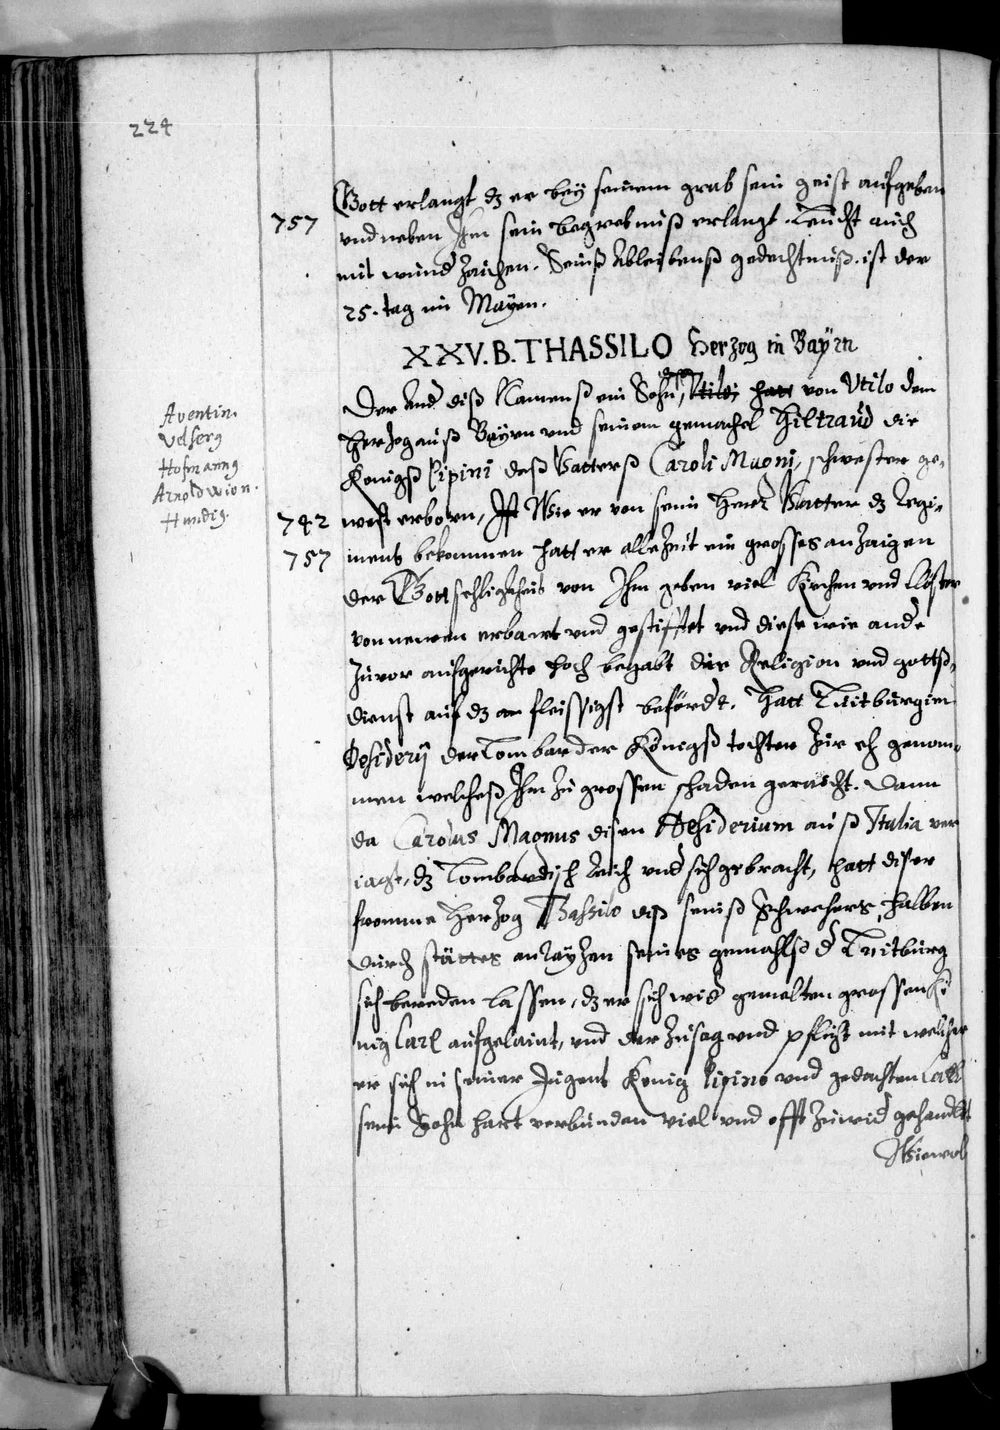 224
Gott erlangt dz er bey seinem grab sein geist aufgeben
757
und neben Ihm sein begrebnuß erlangt. Leucht auch
mit wunderzaichen. Seinß Ableibenß gedechtnuß ist der
25. tag im Mayen.
XXV. B. THASSILO Herzog in Bayrn
Aventin.
Velserg
Hofmanng
Arnold wion.
Hundig.
Der And diß Namenß ein Sohn, von Utilo dem
Herzog auß Bayrn und seinem gemachel Hiltraud die
Konigß Pipini deß Vatterß Caroli Magni, schwester ge-
742
west erborn, Wie er von sein Herr Vatter dz Regi-
757
ment bekommen hatt er alle Zeit ein grosses anzaigen
der Gottsehligkheit von Ihm geben viel Kirchen und Clöster
von newem erbawt und gestifftet und diese wie ande
zuvor aufgerichte hoch begabt die Religion und gottß-
dienst auf dz fleissigst befördt. Hatt Luitburgim
Desiderij der Lombarder Königß tochter zur eh genom-
men welcheß Ihm zu grossen schaden geraicht. Dann
da Carolus Magnus disen Desiderium auß Italia ver
iagt, dz Lombardisch Reich und sich gebracht, hatt diser
fromme Herzog Thassilo diß seinß Schwehers halben
durch stättes anrayzen seines gemahlß d Luitburg
sich bereden lassen, dz er sich wid gemelten grossen Kö
nig Carl aufgelaint, und der zusag und pflicht mit welcher
er sich in seiner Jugent König Pipino und gedachten Carl
sein Sohn hatt verbunden viel und offt zuwid gehandlt
Wiewol